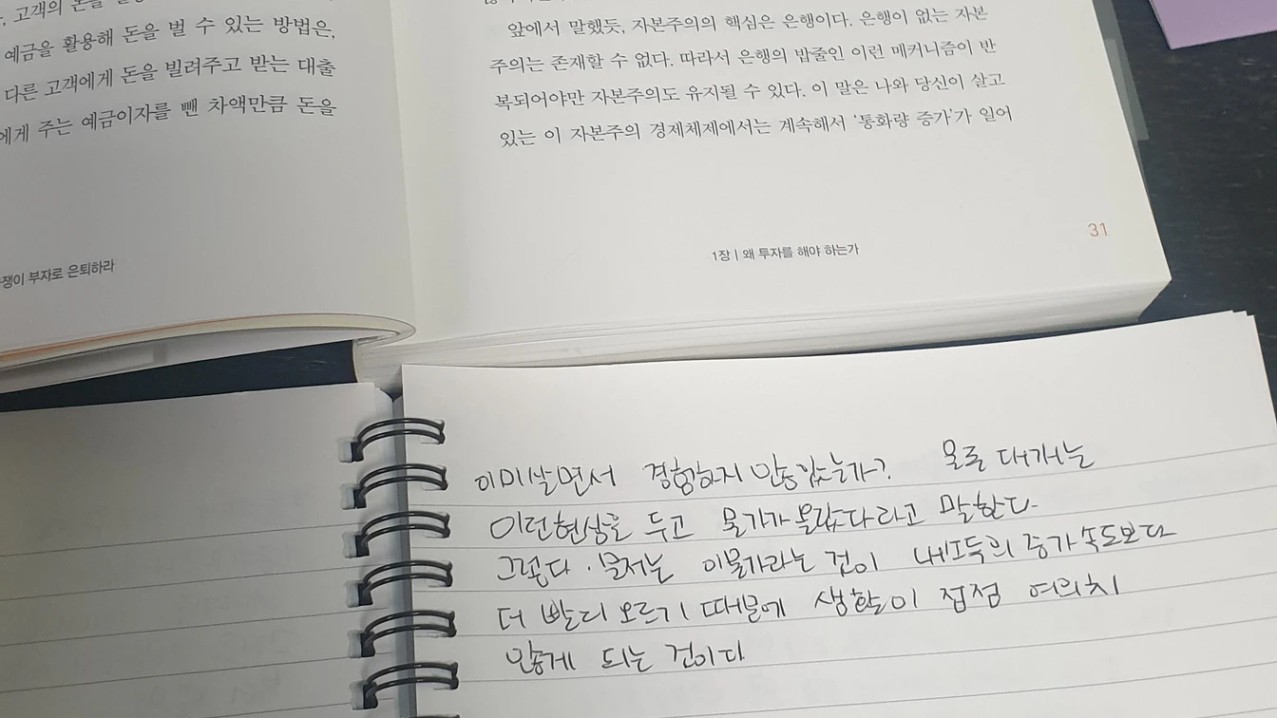 , 고객의 돈을
예금을 활용해 돈을 벌 수 있는 방법은,
다른 고객에게 돈을 빌려주고 받는 대출
에게 주는 예금이자를 뺀 차액만큼 돈을
쟁이 부자로 은퇴하라
앞에서 말했듯, 자본주의의 핵심은 은행이다. 은행이 없는 자본
주의는 존재할 수 없다. 따라서 은행의 밥줄인 이런 메커니즘이 반
복되어야만 자본주의도 유지될 수 있다. 이 말은 나와 당신이 살고
있는 이 자본주의 경제체제에서는 계속해서 '통화량 증가'가 일어
1장 | 왜 투자를 해야 하는가
31
이미살면서 경험하지 않았는가? 대개는
이런현상을 두고 물가가 올랐다라고 말한다.
그렇다. 문제는 이물가라는 것이 내소득의 증가속도보다
더 빨리 오르기 때문에 생활이 접점 여의치
않게 되는 것이다